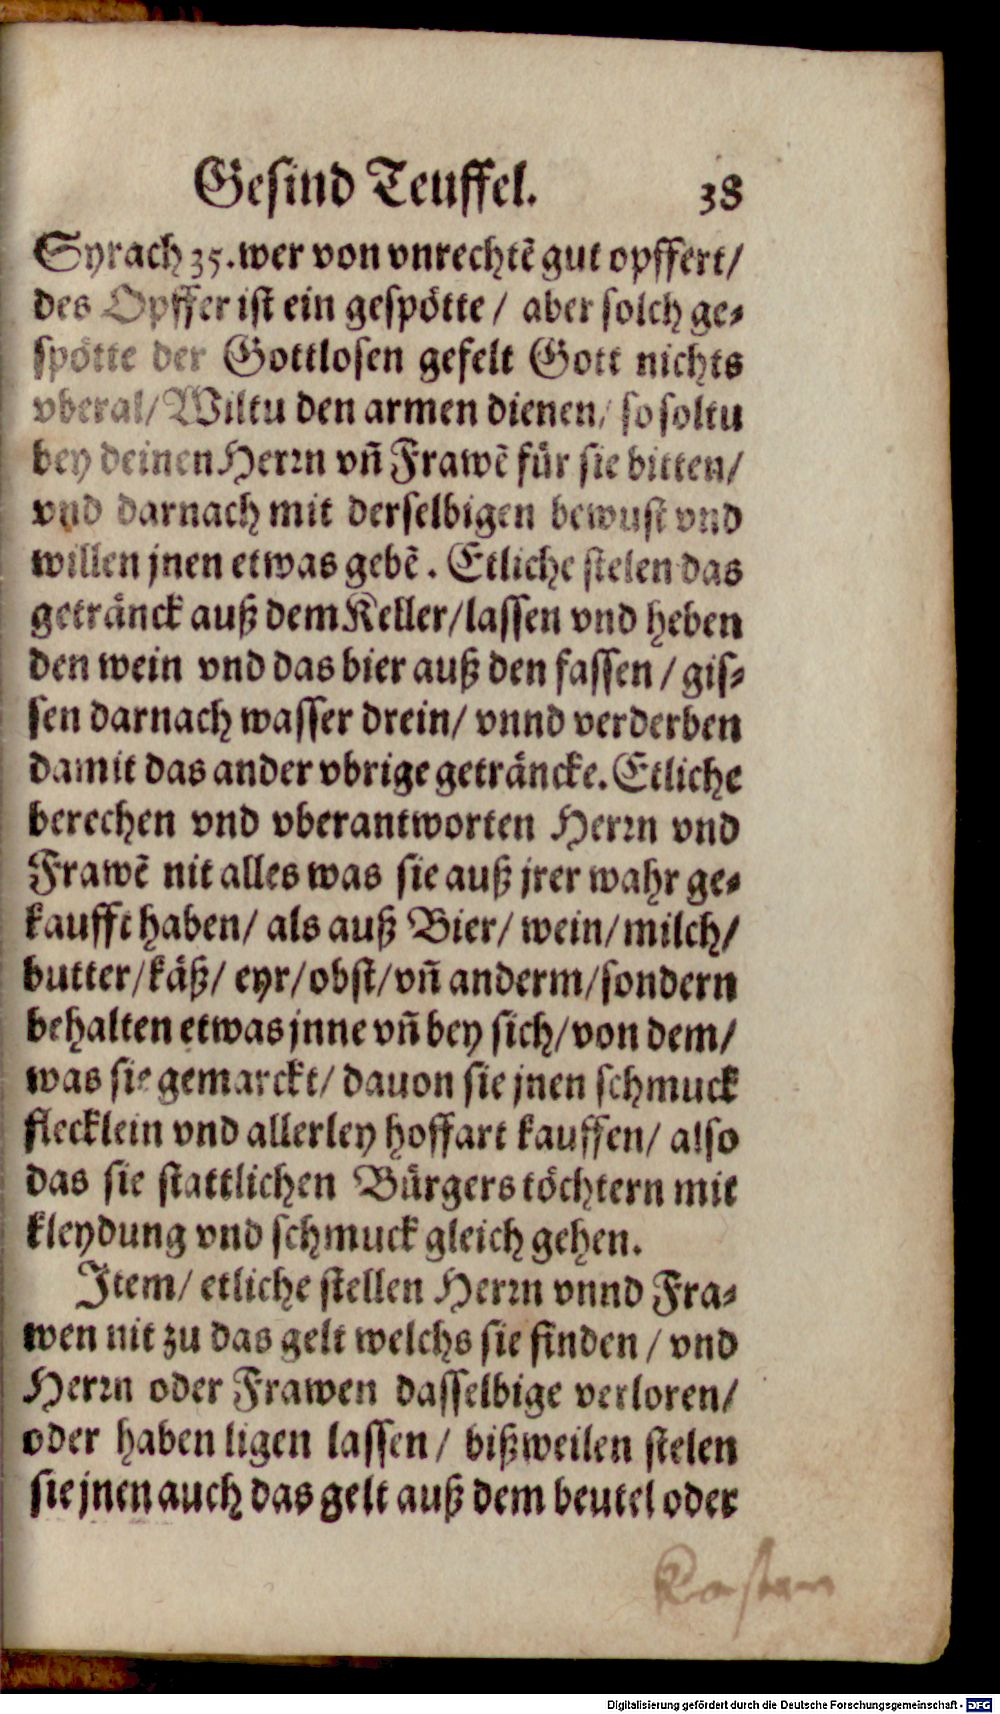 Gesind Teuffel. 38
Syrach 35. wer von vnrechtẽ gut opffert/
des Opffer ist ein gespötte / aber solch ge-
spötte der Gottlosen gefelt Gott nichts
vberal/ Wiltu den armen dienen/ so soltu
bey deinen Herrn vñ Frawẽ für sie bitten/
vnd darnach mit derselbigen bewust vnd
willen jnen etwas gebẽ. Etliche stelen das
getränck auß dem Keller/lassen vnd heben
den wein vnd das bier auß den fassen / gis-
sen darnach wasser drein/ vnnd verderben
damit das ander vbrige geträncke. Etliche
berechen vnd vberantworten Herrn vnd
Frawẽ nit alles was sie auß jrer wahr ge-
kaufft haben/ als auß Bier/ wein/ milch/
butter/käß/ eyr/obst/vñ anderm/sondern
behalten etwas jnne vñ bey sich/von dem/
was sie gemarckt/ dauon sie jnen schmuck
flecklein vnd allerley hoffart kauffen/ also
das sie stattlichen Bürgers töchtern mit
kleydung vnd schmuck gleich gehen.
Item/ etliche stellen Herrn vnnd Fra-
wen nit zu das gelt welchs sie finden / vnd
Herrn oder Frawen dasselbige verloren/
oder haben ligen lassen / bißweilen stelen
sie jnen auch das gelt auß dem beutel oder
Kasten
Digitalisierung gefördert durch die Deutsche Forschungsgemeinschaft - DFG